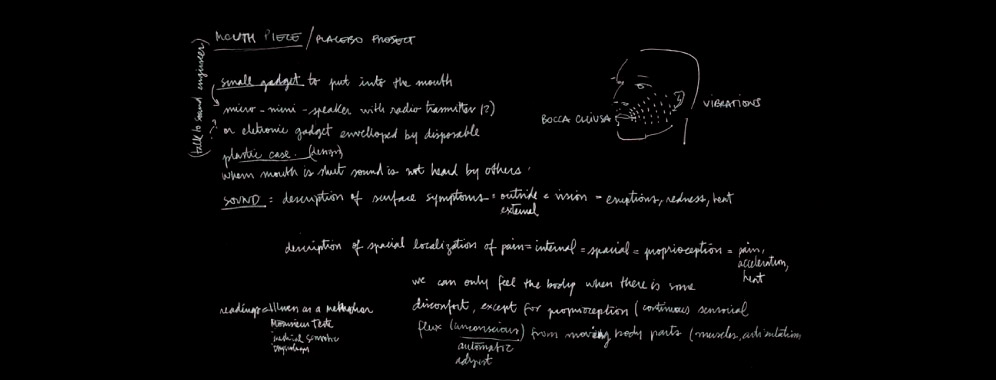 MOUTH PIECE / PLACEBO PROJECT
(talk to sound engineer)
small gadget to put into the mouth
micro-mini-speaker with radio transmitter (?)
? or eletronic gadget envelloped by disposable
plastic case. (design)
when mouth is shut sound is not heard by others.
BOCCA CHIUSA
VIBRATIONS
SOUND : description of surface symptoms = outside & vision = eruptions, redness, heat
external
description of spacial localization of pain = internal = spacial = proprioception = pain,
acceleration,
heat
we can only feel the body when there is some
disconfort, except for proprioception (continuous sensorial
flux (unconscious) from moving body parts (muscles, articulations
automatic
adjust
readings = Illness as a methaphor
Monsieur Teste
medical semiotic